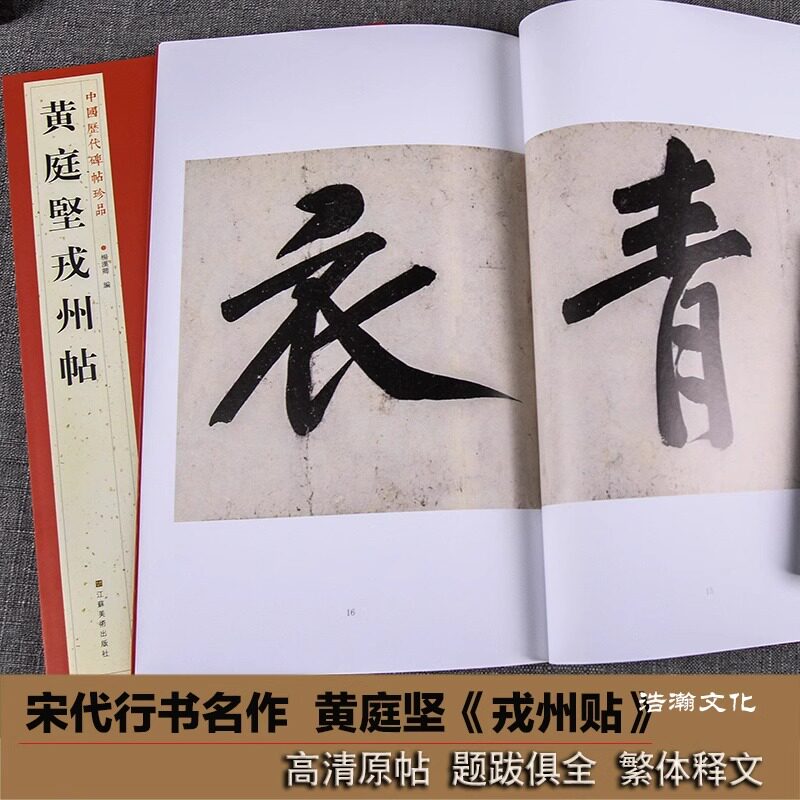 中國歷代碑帖珍品
黄庭堅戎州帖
楊漢卿 編
江蘇美術出版社
青
衣
15
16
宋代行书名作 黄庭坚《戎州贴》
浩瀚文化
高清原帖 题跋俱全 繁体释文